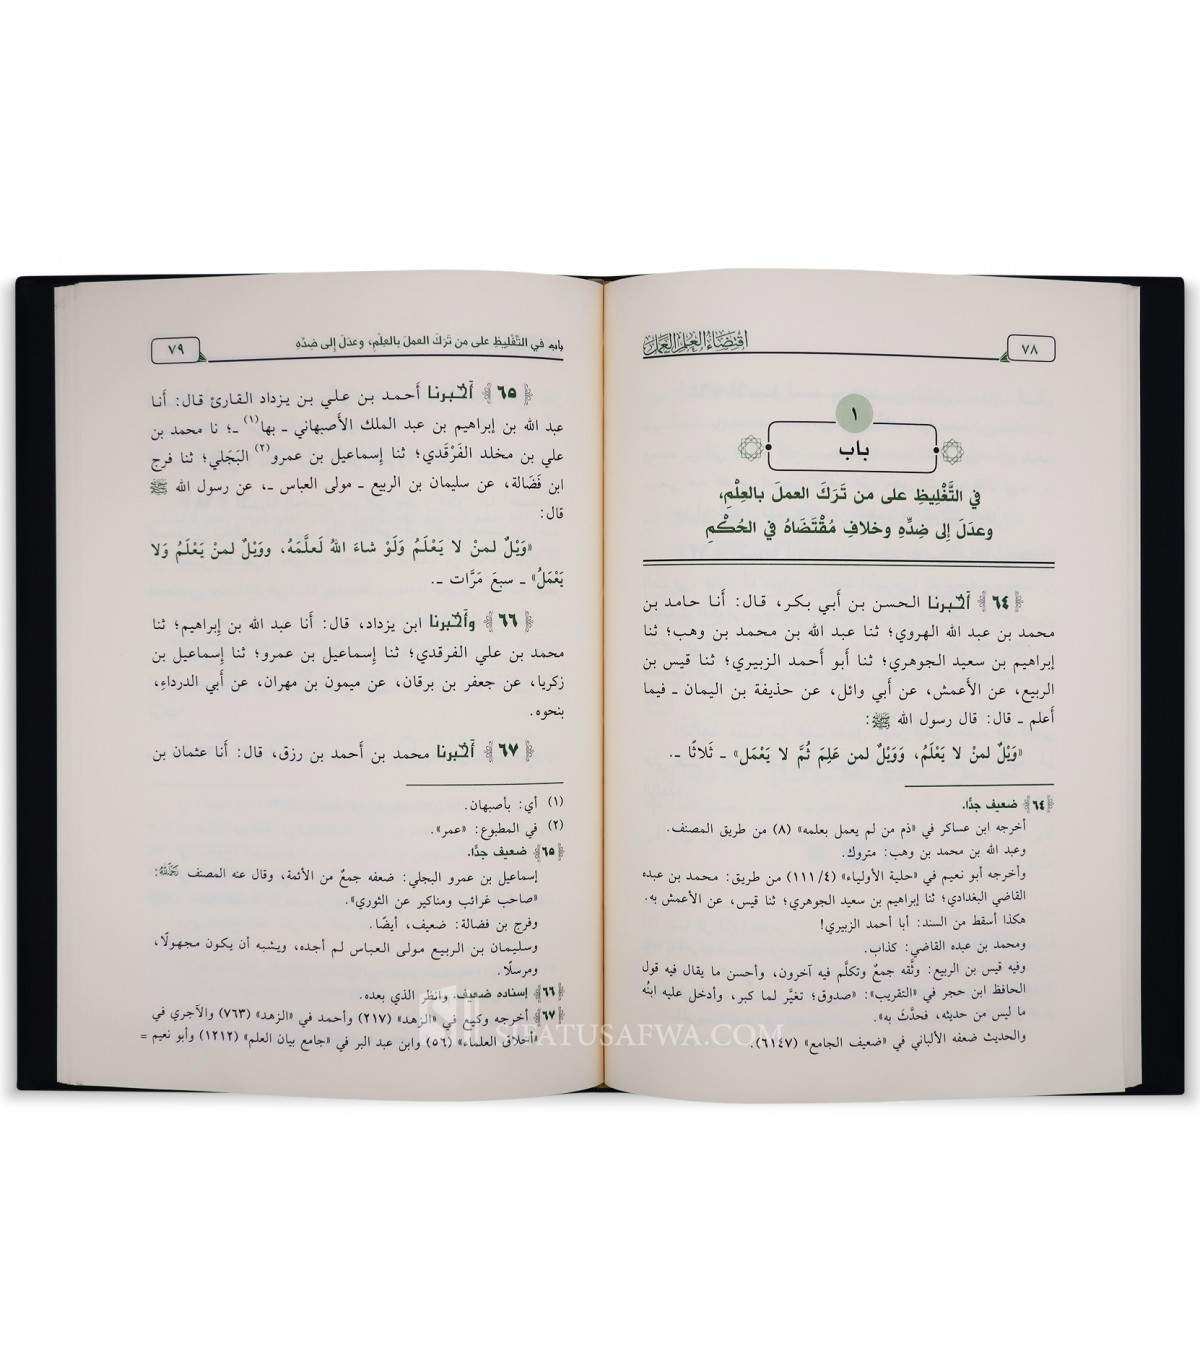 ٧٨
اقتضاء العلم العمل
١
باب
في التَّغْلِيظِ على من تَرَكَ العملَ بالعِلْمِ،
وعدَلَ إلى ضِدِّهِ وخلافِ مُقْتَضَاهُ في الحُكْمِ
﴿٦٤﴾ أخبرنا الحسن بن أبي بكر، قال: أنا حامد بن
محمد بن عبد الله الهروي؛ ثنا عبد الله بن محمد بن وهب؛ ثنا
إبراهيم بن سعيد الجوهري؛ ثنا أبو أحمد الزبيري؛ ثنا قيس بن
الربيع، عن الأعمش، عن أبي وائل، عن حذيفة بن اليمان ـ فيما
أعلم ـ قال: قال رسول الله ﷺ:
«وَيْلٌ لمنْ لا يَعْلَمُ، وَوَيْلٌ لمن عَلِمَ ثُمَّ لا يَعْمَل» ـ ثَلاثًا ـ.
﴿٦٤﴾ ضعيف جدًّا.
أخرجه ابن عساكر في «ذم من لم يعمل بعلمه» (٨) من طريق المصنف.
وعبد الله بن محمد بن وهب: متروك.
وأخرجه أبو نعيم في «حلية الأولياء» (٤/١١١) من طريق: محمد بن عبده
القاضي البغدادي؛ ثنا إبراهيم بن سعيد الجوهري؛ ثنا قيس، عن الأعمش به.
هكذا أسقط من السند: أبا أحمد الزبيري!
ومحمد بن عبده القاضي: كذاب.
وفيه قيس بن الربيع: وثَّقه جمعٌ وتكلَّم فيه آخرون، وأحسن ما يقال فيه قول
الحافظ ابن حجر في «التقريب»: «صدوق؛ تغيَّر لما كبر، وأدخل عليه ابنُه
ما ليس من حديثه، فحدَّث به».
والحديث ضعفه الألباني في «ضعيف الجامع» (٦١٤٧).
باب في التَّغْلِيظِ على من تَرَكَ العملَ بالعِلْمِ، وعدَلَ إلى ضِدِّهِ
٧٩
﴿٦٥﴾ أخبرنا أحمد بن علي بن يزداد القارئ قال: أنا
عبد الله بن إبراهيم بن عبد الملك الأصبهاني ـ بها(١) ـ؛ نا محمد بن
علي بن مخلد الفَرْقَدي؛ ثنا إسماعيل بن عمرو(٢) البَجَلي؛ ثنا فرج
ابن فَضَالة، عن سليمان بن الربيع ـ مولى العباس ـ، عن رسول الله ﷺ
قال:
«وَيْلٌ لمنْ لا يَعْلَمُ وَلَوْ شاءَ اللهُ لَعلَّمَهُ، ووَيْلٌ لمنْ يَعْلَمُ وَلا
يَعْمَلُ» ـ سبعَ مَرَّات ـ.
﴿٦٦﴾ وأخبرنا ابن يزداد، قال: أنا عبد الله بن إبراهيم؛ ثنا
محمد بن علي الفرقدي؛ ثنا إسماعيل بن عمرو؛ ثنا إسماعيل بن
زكريا، عن جعفر بن برقان، عن ميمون بن مهران، عن أبي الدرداءِ،
بنحوه.
﴿٦٧﴾ أخبرنا محمد بن أحمد بن رزق، قال: أنا عثمان بن
(١) أي: بأصبهان.
(٢) في المطبوع: «عمر».
﴿٦٥﴾ ضعيف جدًّا.
إسماعيل بن عمرو البجلي: ضعفه جمعٌ من الأئمة، وقال عنه المصنف رحمه الله:
«صاحب غرائب ومناكير عن الثوري».
وفرج بن فضالة: ضعيف، أيضًا.
وسليمان بن الربيع مولى العباس لم أجده، ويشبه أن يكون مجهولًا،
ومرسلًا.
﴿٦٦﴾ إسناده ضعيف. وانظر الذي بعده.
﴿٦٧﴾ أخرجه وكيع في «الزهد» (٢١٧) وأحمد في «الزهد» (٧٦٣) والآجري في
«أخلاق العلماء» (٥٦) وابن عبد البر في «جامع بيان العلم» (١٢١٢) وأبو نعيم =
SIFATUSAFWA.COM